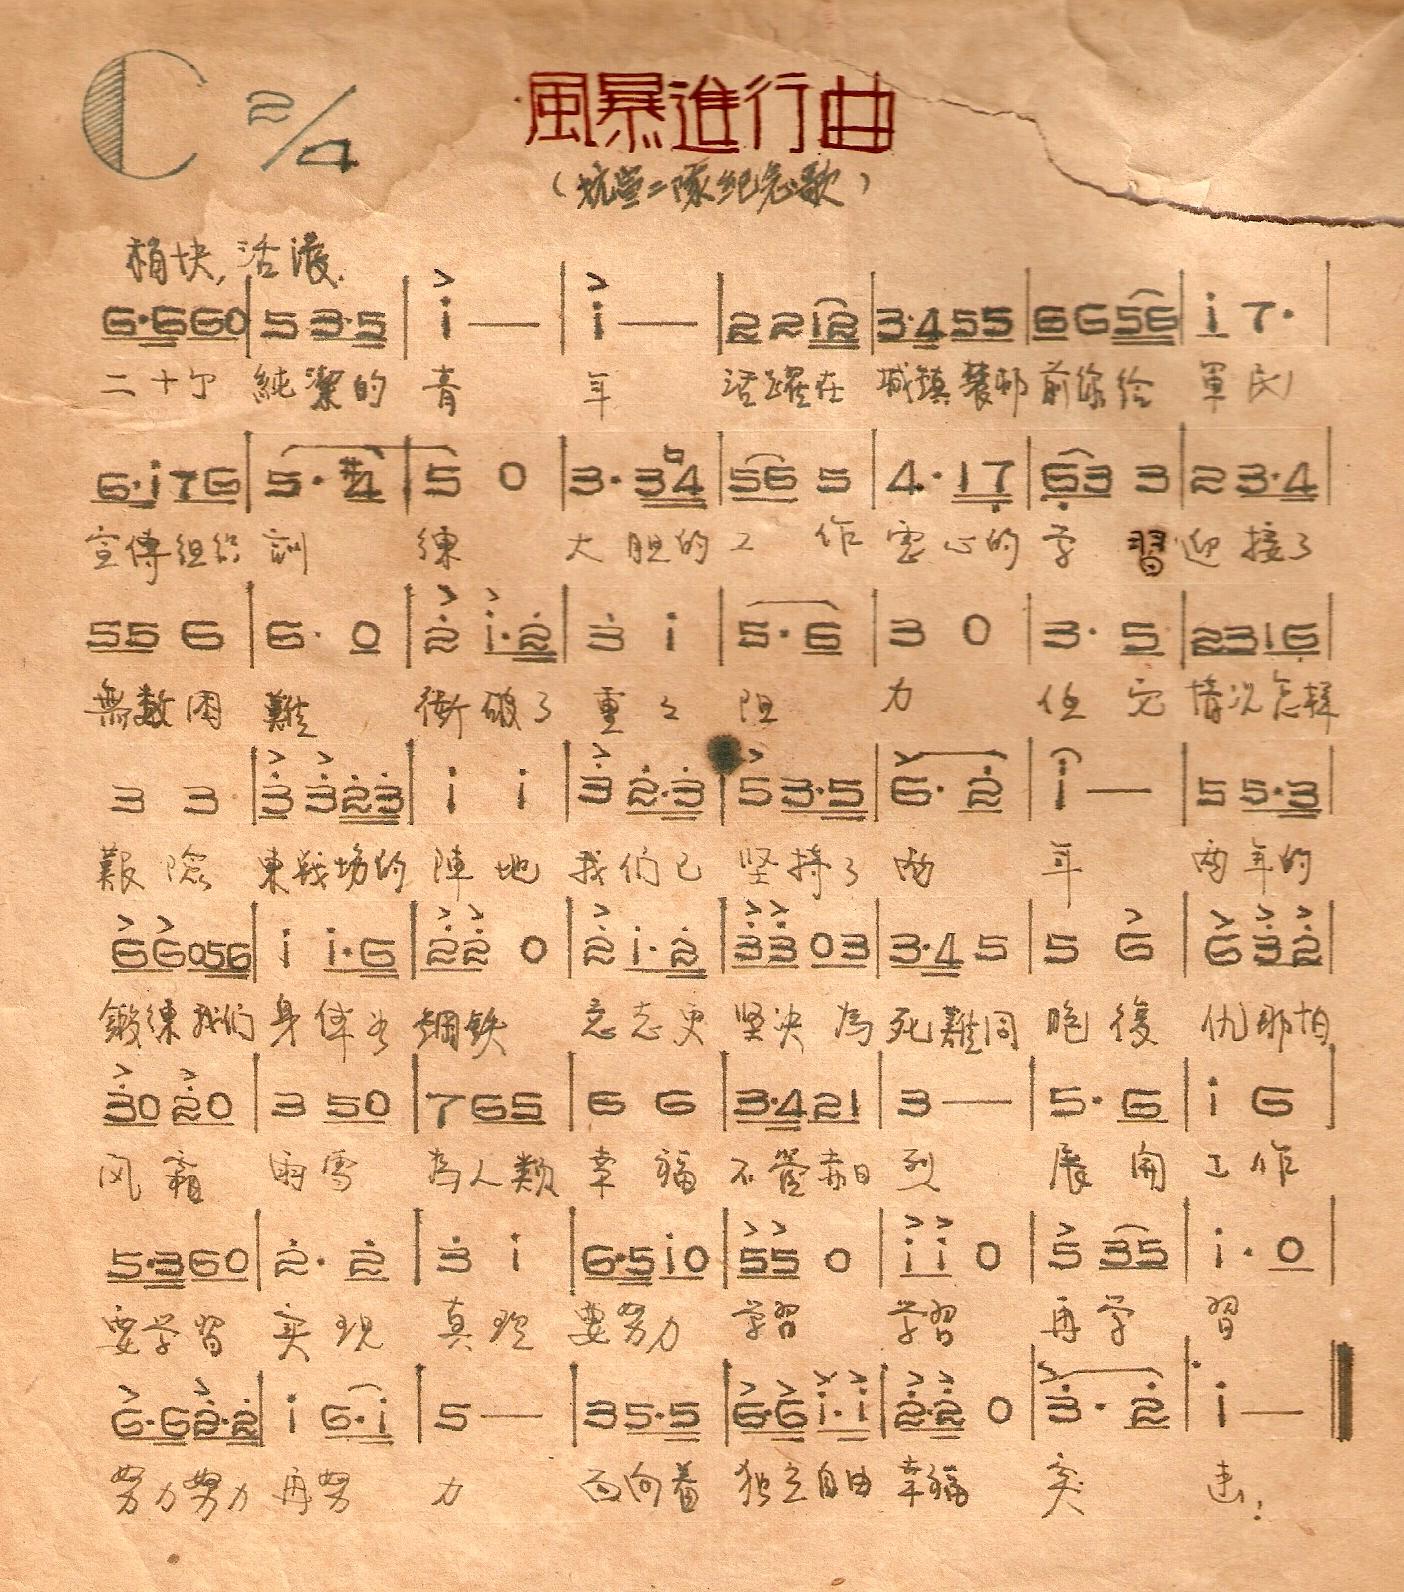 C 2/4
風暴進行曲
(抗宣二隊紀念歌)
稍快,活潑.
6·5 6 0 | 5 3·5 | i — | i — | 2 2 1 2 | 3·4 5 5 | 6 6 5 6 | i 7· |
二十个 純潔的 青 年 活躍在 城鎮 鄉 前綫給 軍民
6·i 7 6 | 5·#4 | 5 0 | 3·3 4 | 5 6 5 | 4·1 7 | 6 3 3 | 2 3·4 |
宣傳組織 訓 練 大胆的 工作 虛心的 学習 迎接了
5 5 6 | 6· 0 | 2 i·2 | 3 i | 5·6 | 3 0 | 3·5 | 2 3 1 6 |
無數困 難 衝破了 重々 阻 力 任它 情况怎样
3 3 | 3 3 2 3 | i i | 3 2·3 | 5 3·5 | 6·2 | i — | 5 5·3 |
艱險 東战場的 陣地 我们已 坚持了 両 年 両年的
6 6 0 5 6 | i i·6 | 2 2 0 | 2 i·2 | 3 3 0 3 | 3·4 5 | 5 6 | 6 3 2 |
鍛練我们 身体如 鋼鉄 意志更 坚决為 死難同 胞復 仇那怕
3 0 2 0 | 3 5 0 | 7 6 5 | 6 6 | 3·4 2 1 | 3 — | 5·6 | i 6 |
风霜 雨雪 為人類 幸福 不管赤日 烈 展開 工作
5·3 6 0 | 2·2 | 3 i | 6·5 i 0 | 5 5 0 | i i 0 | 5 3 5 | i· 0 |
要学習 实現 真理 要努力 学習 学習 再学 習
6·6 2·2 | i 6·i | 5 — | 3 5·5 | 6·6 i·i | 2·2 0 | 3·2 | i — |
努力努力 再努 力 面向着 独立自由 幸福 突 击!